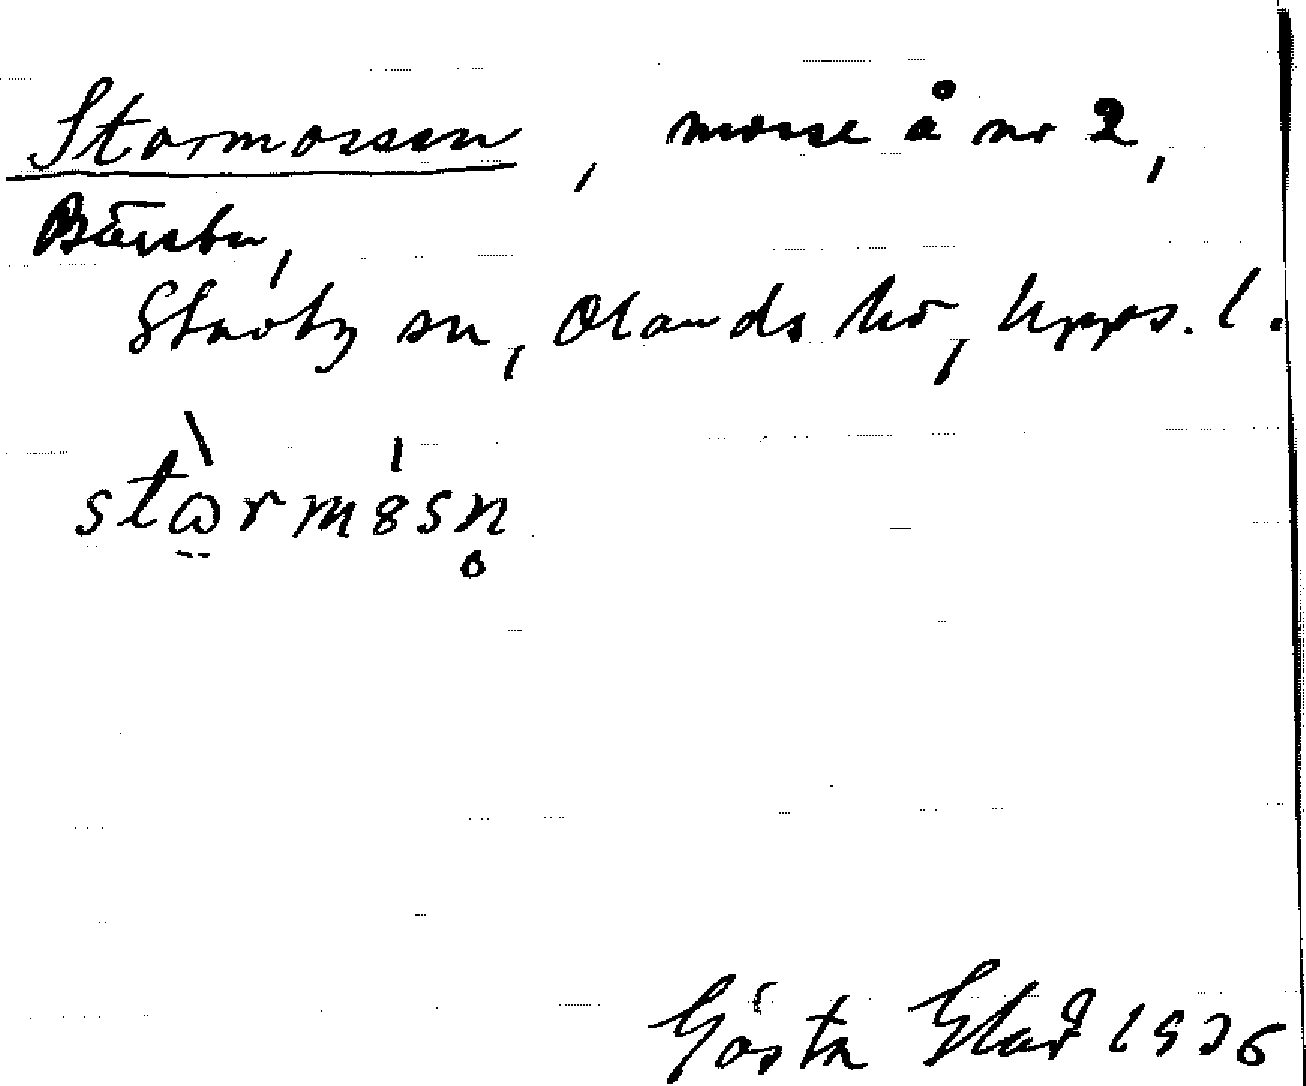 Stormossen, mosse å nr 2,
Bärsta,
Stavby sn, Olands hd, Upps. l.
stɷ̀rmósn̥
Gösta 1936